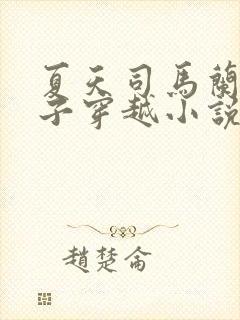 夏天司馬蘭
子穿越小說
趙楚侖